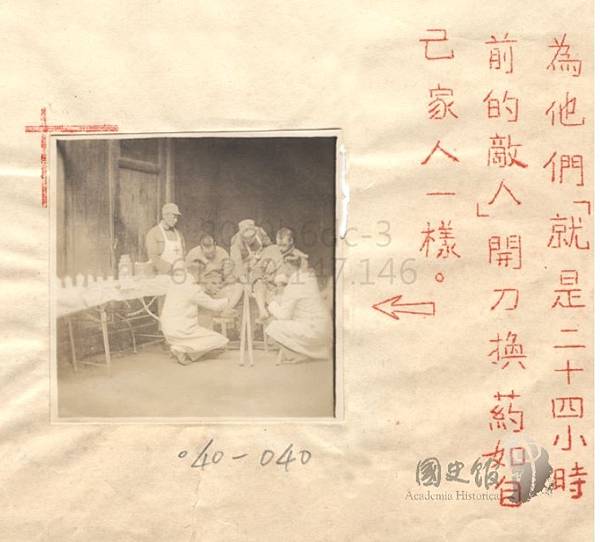 為他們「就是二十四小時
前的敵人」開刀換葯如自
己家人一樣。
61.219.147.146
040-040
國史館
Academia Historica